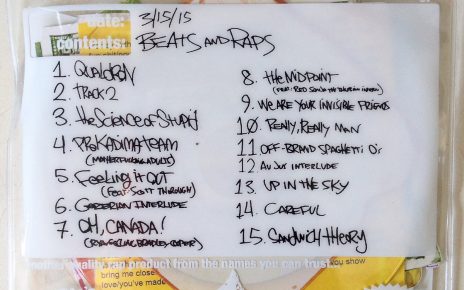 date:
contents:
3/15/15
BEATS AND RAPS
1. QUALDRON
2. TRACK 2
3. the SCIENCE OF STUPID
4. PROKADIMA TEAM
(MOTHERFUCKING ADULTS)
5. FEELING it OUT
(FEAT. SCOTT THOROUGH)
6. INTERLUDE
7. OH, CANADA!
8. the MIDPOINT
(FEAT. RED
9. WE ARE YOUR INVISIBLE FRIENDS
10. REALLY, REALLY MAN
11. OFF-BRAND SPAGHETTI O's
12. AU JUS INTERLUDE
13. UP IN THE SKY
14. CAREFUL
15. SANDWICH THEORY
quality can product from the names you can trust...
bring me close
love/you've made
you show